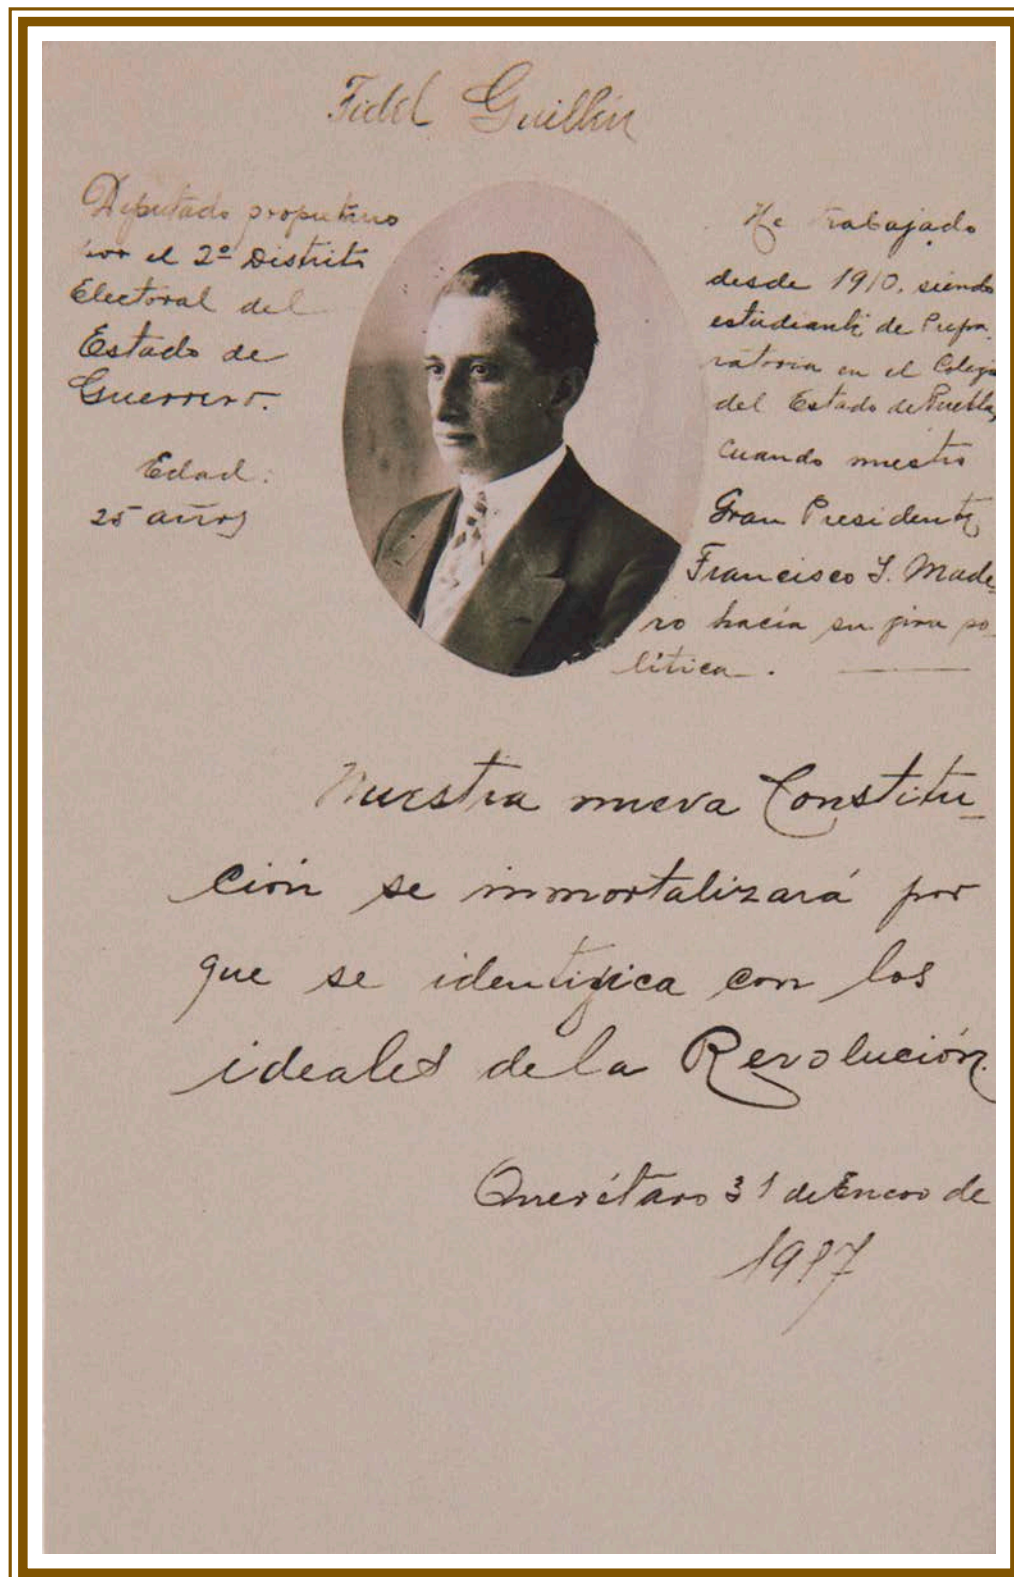 Fidel Guillén
Diputado propietario
por el 2º Distrito
Electoral del
Estado de
Guerrero.
Edad:
25 años
He trabajado
desde 1910, siendo
estudiante de Prepa-
ratoria en el Colegio
del Estado de Puebla,
cuando nuestro
Gran Presidente
Francisco I. Made-
ro hacía su jira po-
lítica.
Nuestra nueva Constitu-
ción se inmortalizará por
que se identifica con los
ideales de la Revolución.
Querétaro 31 de Enero de
1917